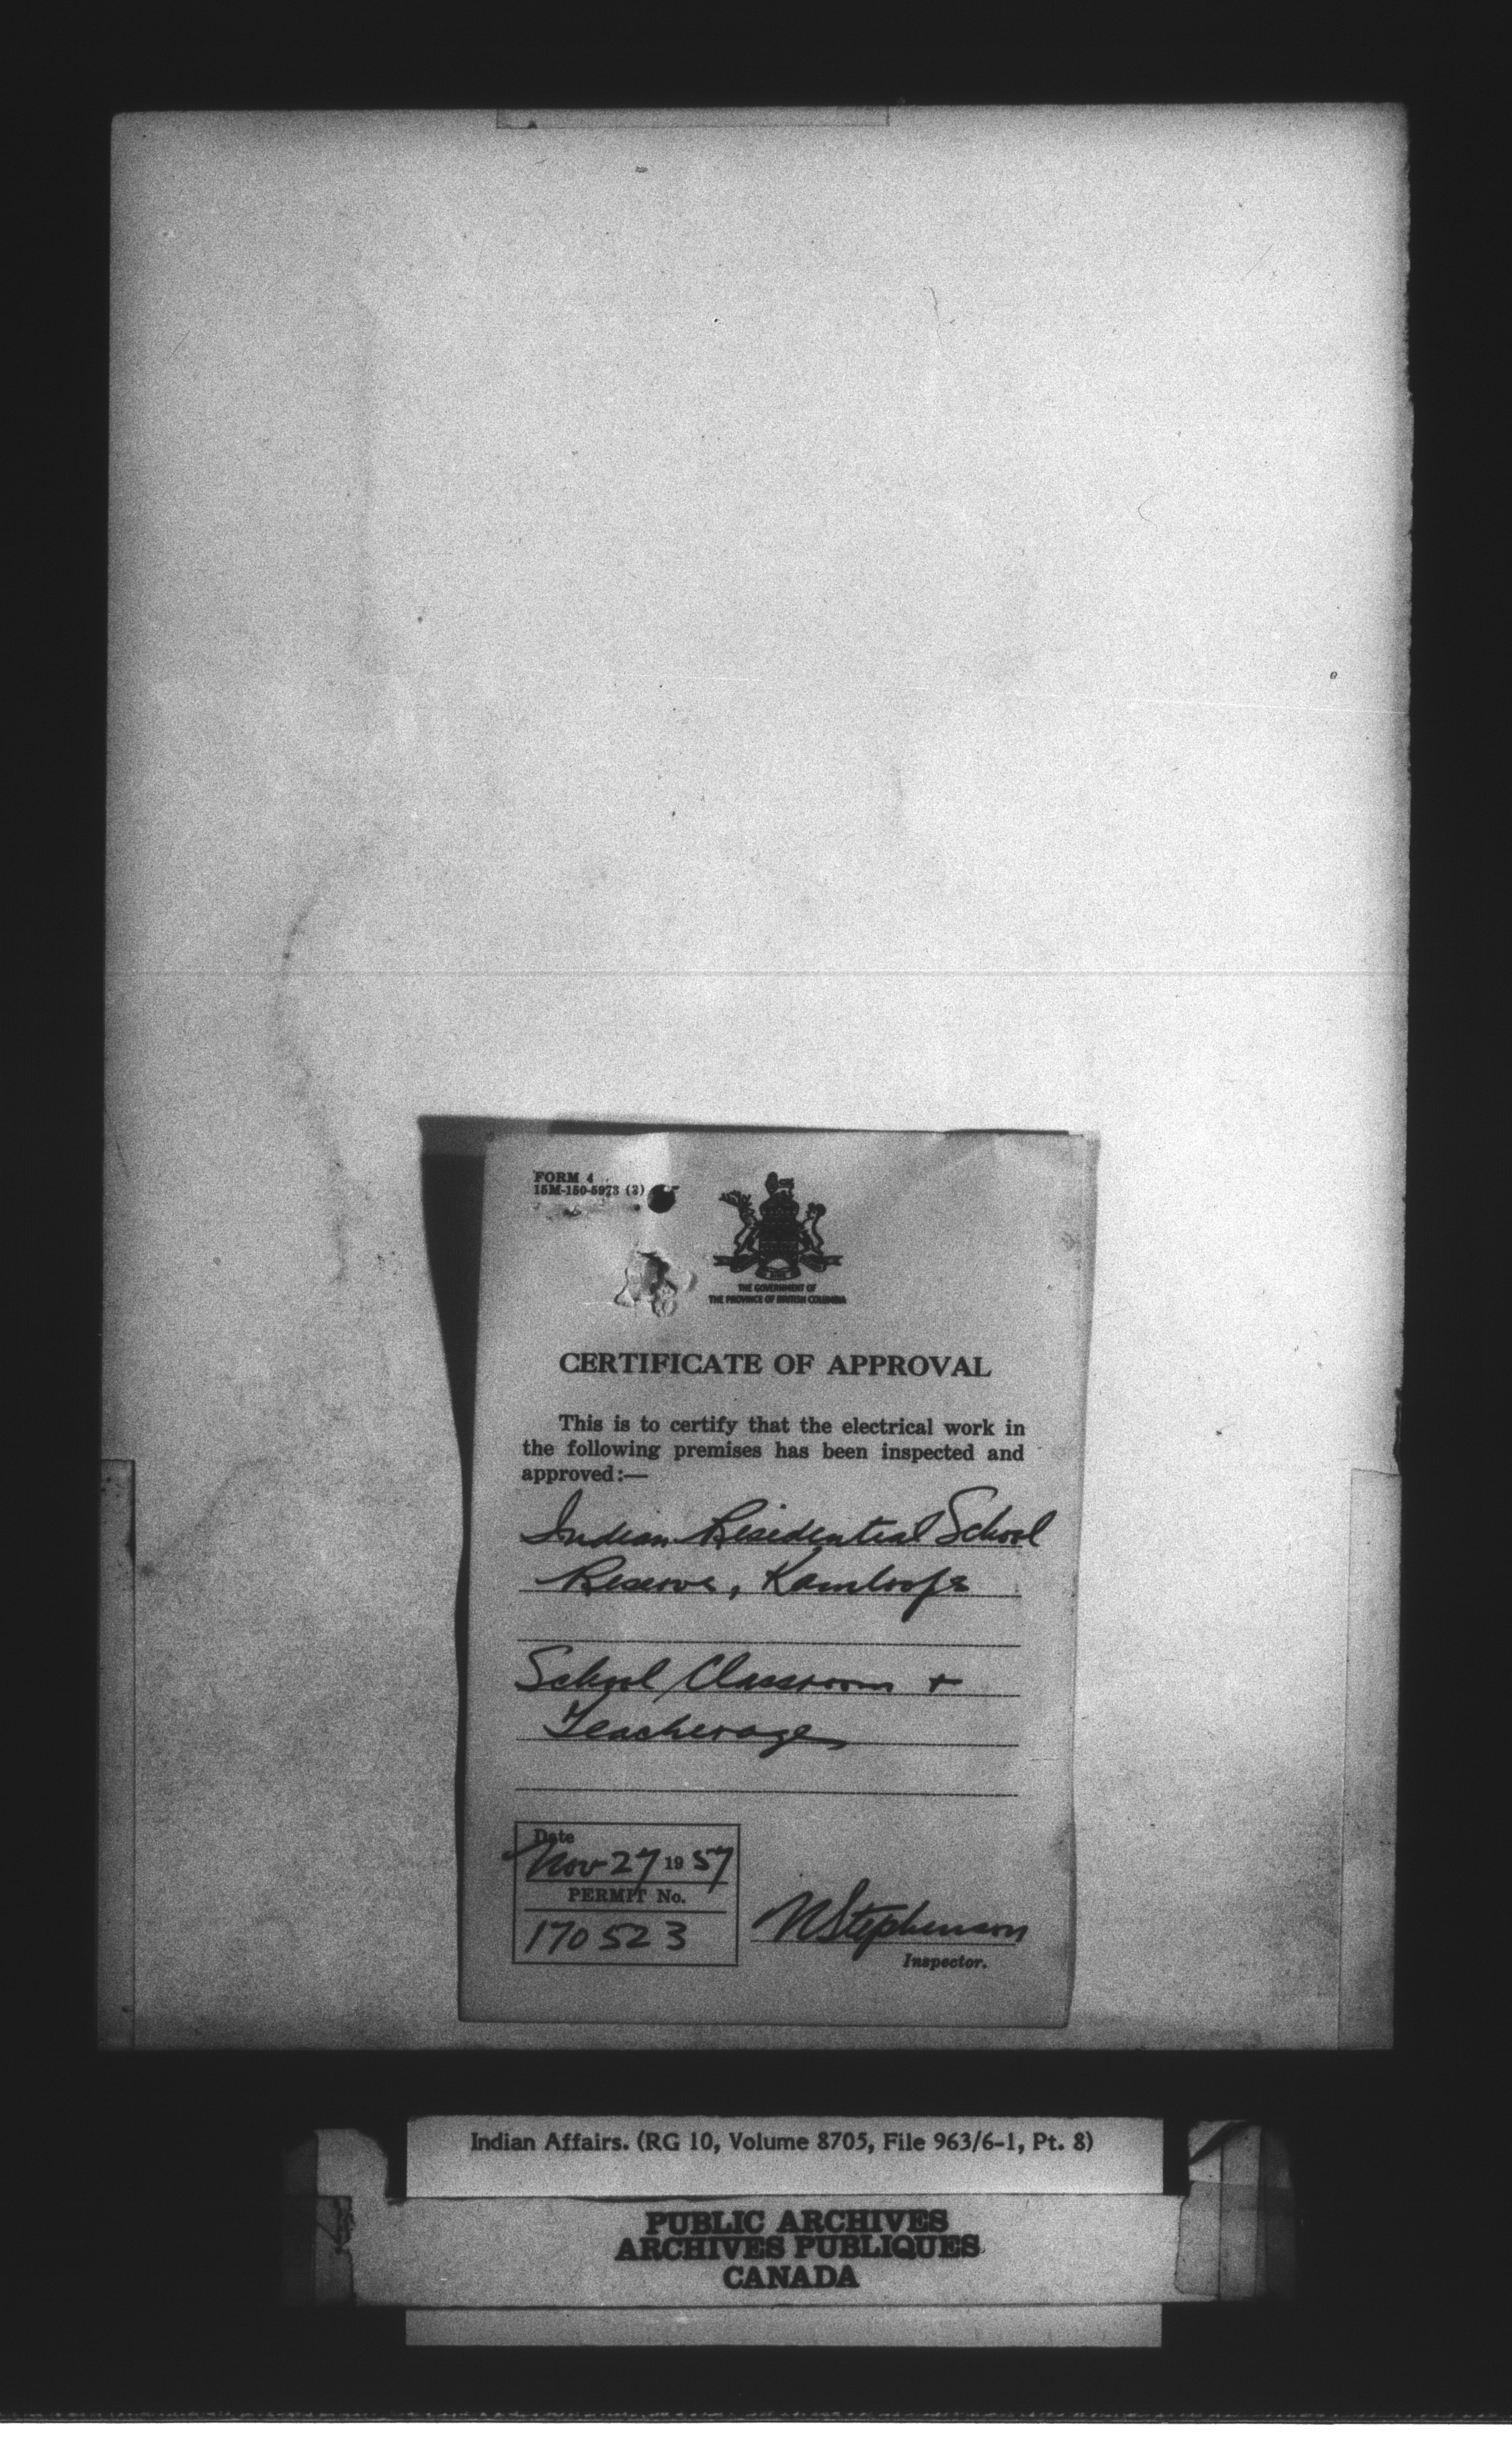 FORM 4
15M-150-5973 (2)
THE GOVERNMENT OF
THE PROVINCE OF BRITISH COLUMBIA
CERTIFICATE OF APPROVAL
This is to certify that the electrical work in
the following premises has been inspected and
approved:—
Indian Residential School
Reserve, Kamloops
School Classroom +
Teacherage
Date
Nov 27 1957
PERMIT No.
170523
N Stephenson
Inspector.
Indian Affairs. (RG 10, Volume 8705, File 963/6-1, Pt. 8)
PUBLIC ARCHIVES
ARCHIVES PUBLIQUES
CANADA